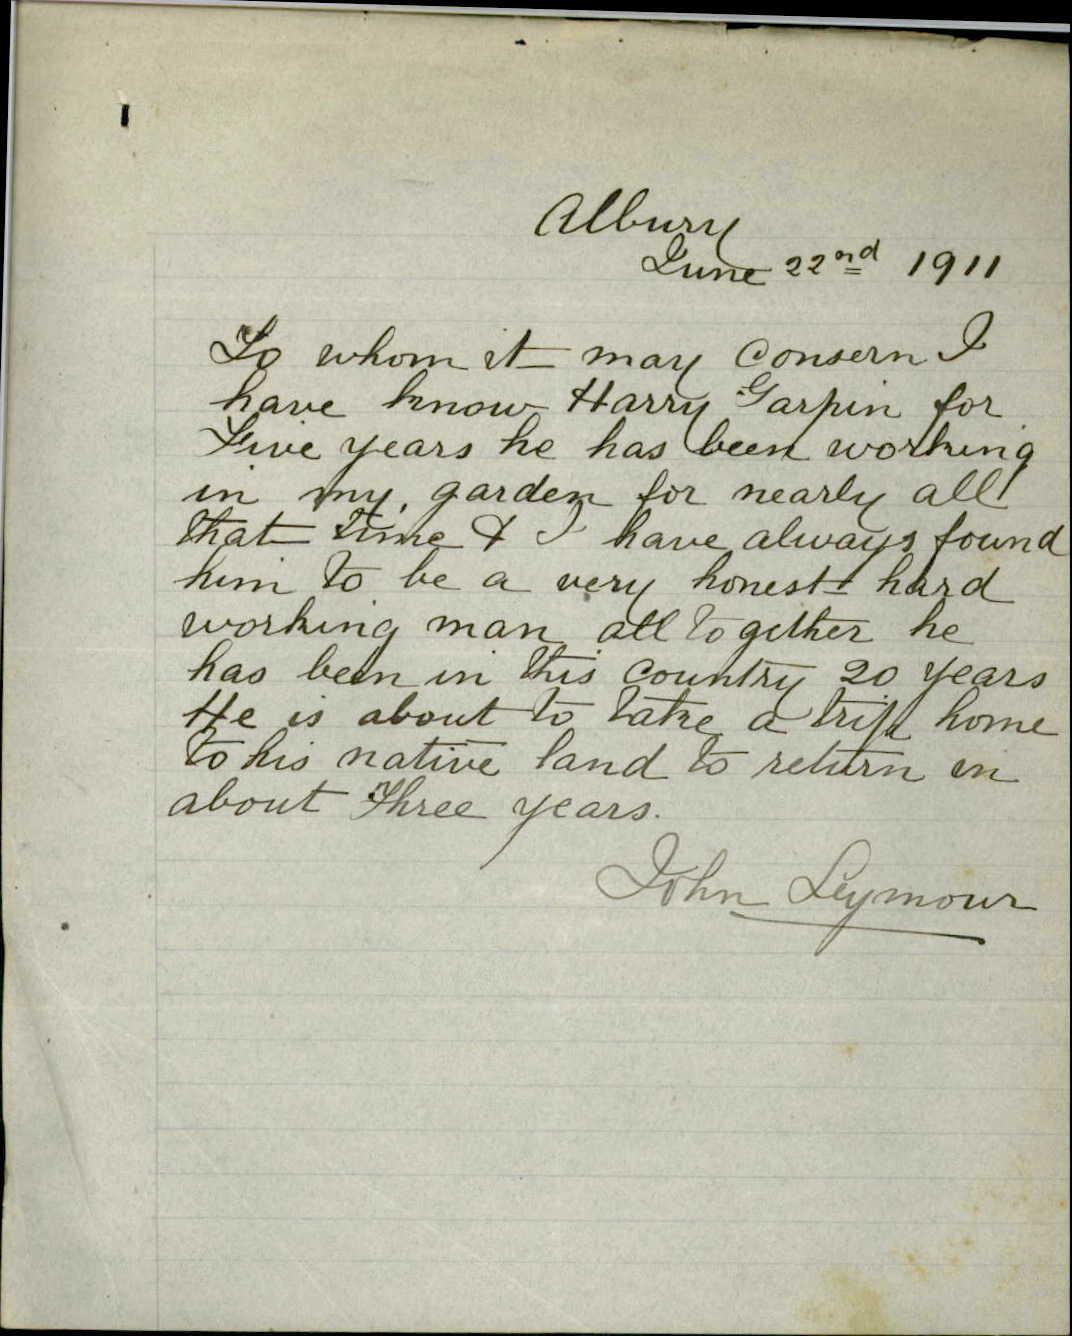 Albury
June 22nd 1911
To whom it may consern I
have know Harry Garpin for
Five years he has been working
in my garden for nearly all
that time & I have always found
him to be a very honest hard
working man all together he
has been in this country 20 years
He is about to take a trip home
to his native land to return in
about Three years.
John Seymour